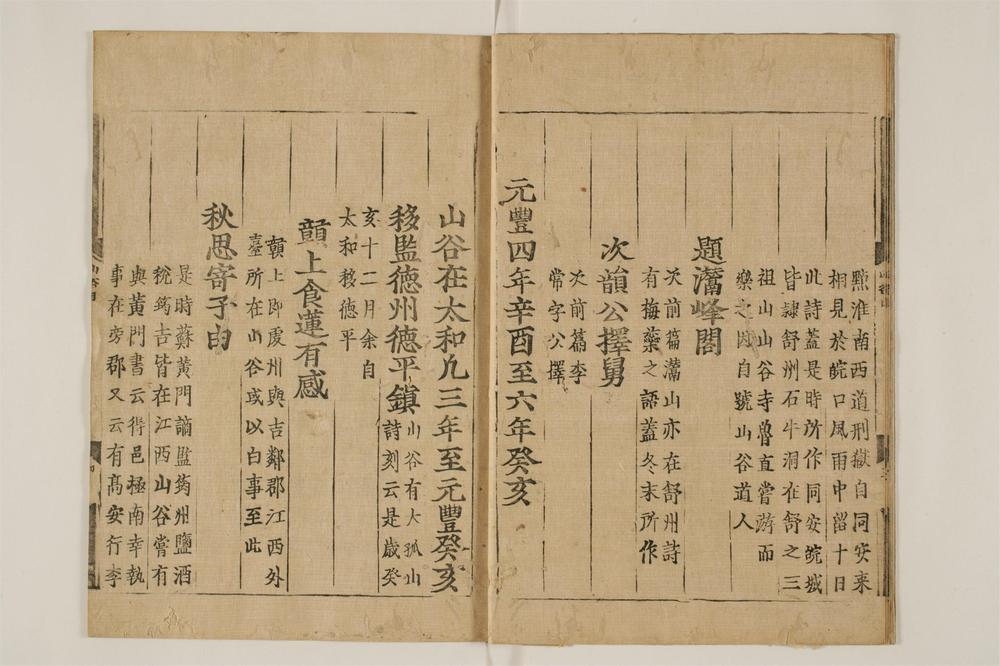 黥淮南西道刑獄自同安来
相見於皖口風雨中留十日
此詩蓋是時所作同安皖城
皆隷舒州石牛洞在舒之三
祖山山谷寺魯直嘗游而
樂之因自號山谷道人
題灊峰閣
次前篇灊山亦在舒州詩
有梅蘂之語蓋冬末所作
次韻公擇舅
次前篇李
常字公擇
元豐四年辛酉至六年癸亥
山谷在太和凡三年至元豐癸亥
移監德州德平鎮
山谷有大孤山
詩刻云是歲癸
亥十二月余自
太和移德平
顛上食蓮有感
贛上即虔州與吉鄰郡江西外
臺所在山谷或以白事至此
秋思寄子由
是時蘇黄門謫監筠州鹽酒
稅筠吉皆在江西山谷嘗有
與黄門書云得邑極南幸執
事在旁郡又云有高安行李